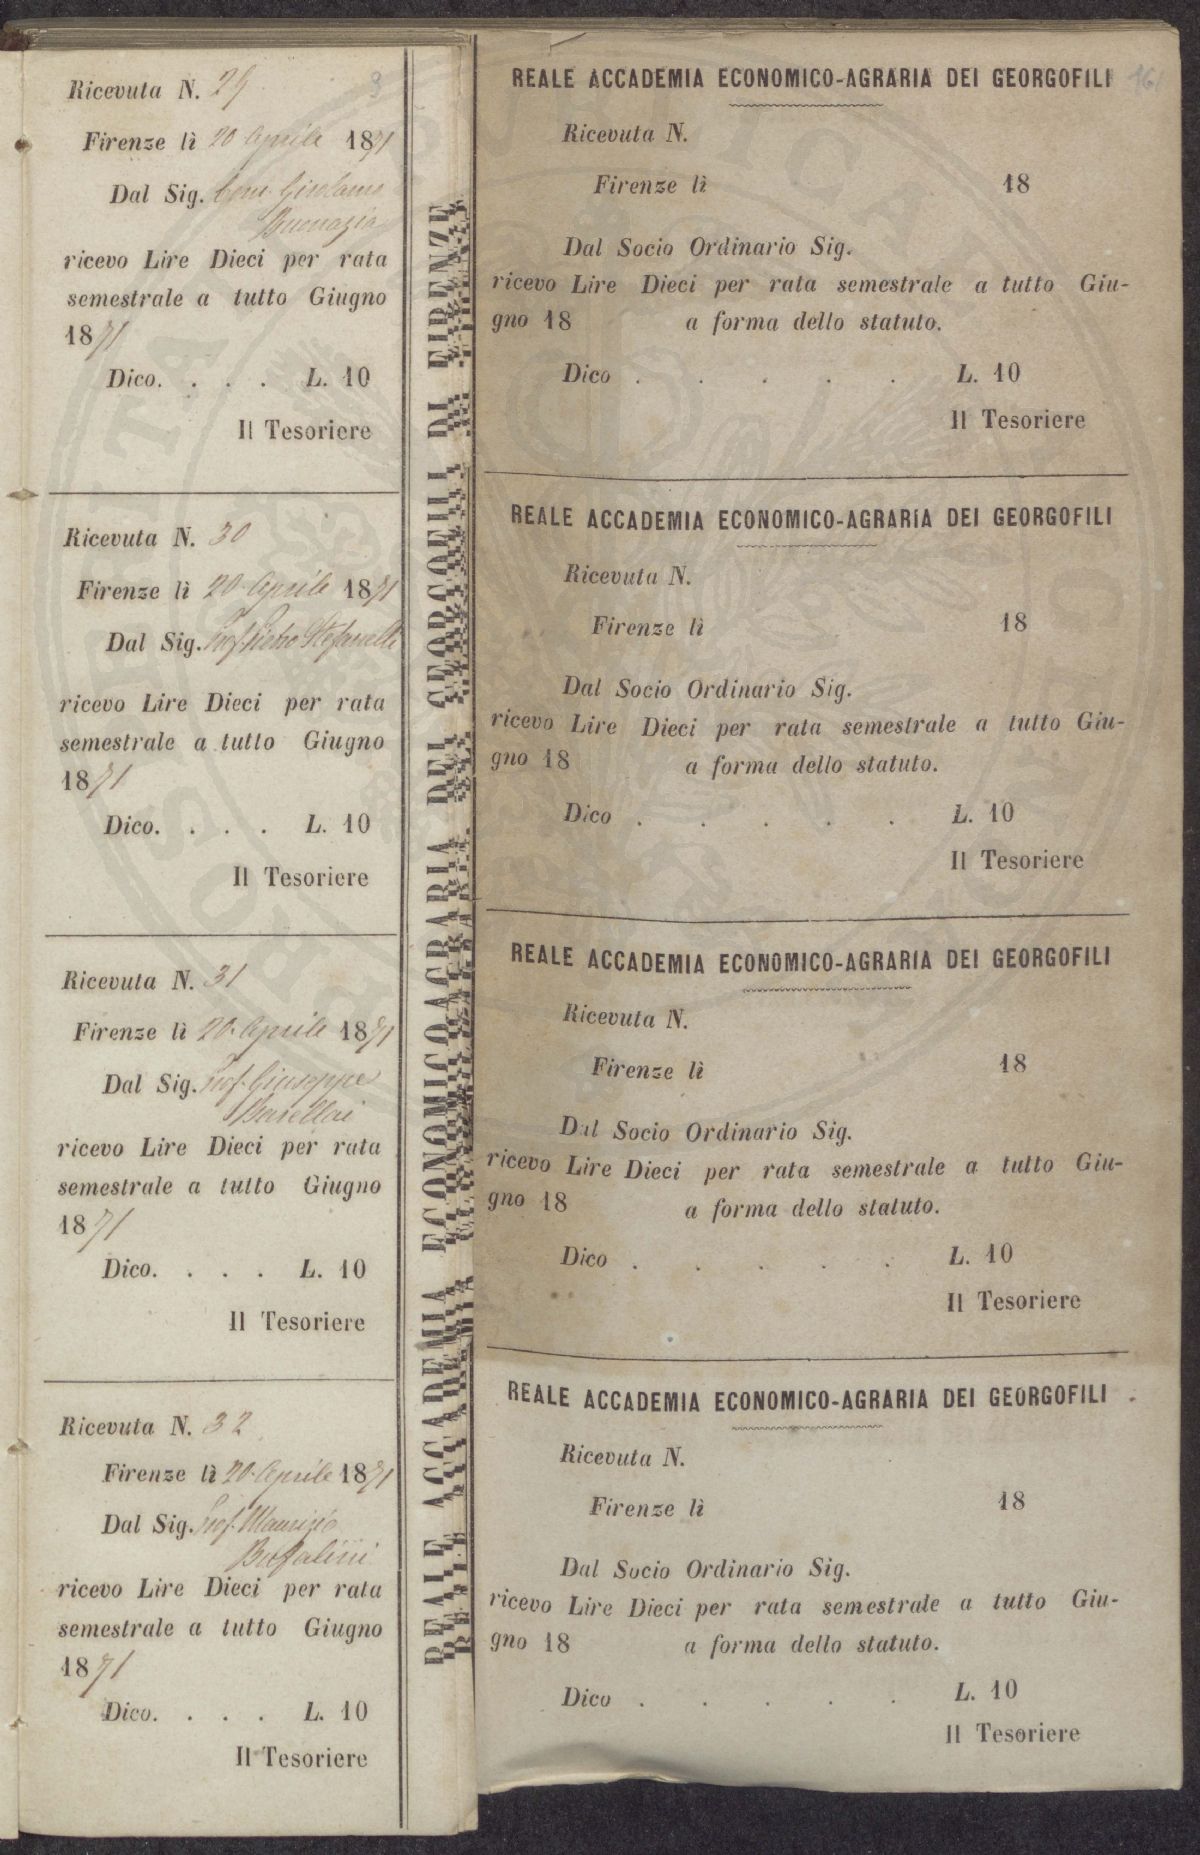 Ricevuta N. 29
Firenze lì 20 Aprile 1871
Dal Sig. Girolamo
Buonazia
ricevo Lire Dieci per rata
semestrale a tutto Giugno
1871
Dico. . . . L. 10
Il Tesoriere
Ricevuta N. 30
Firenze lì 20 Aprile 1871
Dal Sig. Prof. Pietro Stefanelli
ricevo Lire Dieci per rata
semestrale a tutto Giugno
1871
Dico. . . . L. 10
Il Tesoriere
Ricevuta N. 31
Firenze lì 20 Aprile 1871
Dal Sig. Prof. Giuseppe
Barellai
ricevo Lire Dieci per rata
semestrale a tutto Giugno
1871
Dico. . . . L. 10
Il Tesoriere
Ricevuta N. 32
Firenze lì 20 Aprile 1871
Dal Sig. Prof. Maurizio
Bufalini
ricevo Lire Dieci per rata
semestrale a tutto Giugno
1871
Dico. . . . L. 10
Il Tesoriere
REALE ACCADEMIA ECONOMICO AGRARIA DEI GEORGOFILI DI FIRENZE
REALE ACCADEMIA ECONOMICO-AGRARIA DEI GEORGOFILI
Ricevuta N.
Firenze lì 18
Dal Socio Ordinario Sig.
ricevo Lire Dieci per rata semestrale a tutto Giu-
gno 18 a forma dello statuto.
Dico . . . . . L. 10
Il Tesoriere
REALE ACCADEMIA ECONOMICO-AGRARIA DEI GEORGOFILI
Ricevuta N.
Firenze lì 18
Dal Socio Ordinario Sig.
ricevo Lire Dieci per rata semestrale a tutto Giu-
gno 18 a forma dello statuto.
Dico . . . . . L. 10
Il Tesoriere
REALE ACCADEMIA ECONOMICO-AGRARIA DEI GEORGOFILI
Ricevuta N.
Firenze lì 18
Dal Socio Ordinario Sig.
ricevo Lire Dieci per rata semestrale a tutto Giu-
gno 18 a forma dello statuto.
Dico . . . . . L. 10
Il Tesoriere
REALE ACCADEMIA ECONOMICO-AGRARIA DEI GEORGOFILI
Ricevuta N.
Firenze lì 18
Dal Socio Ordinario Sig.
ricevo Lire Dieci per rata semestrale a tutto Giu-
gno 18 a forma dello statuto.
Dico . . . . . L. 10
Il Tesoriere